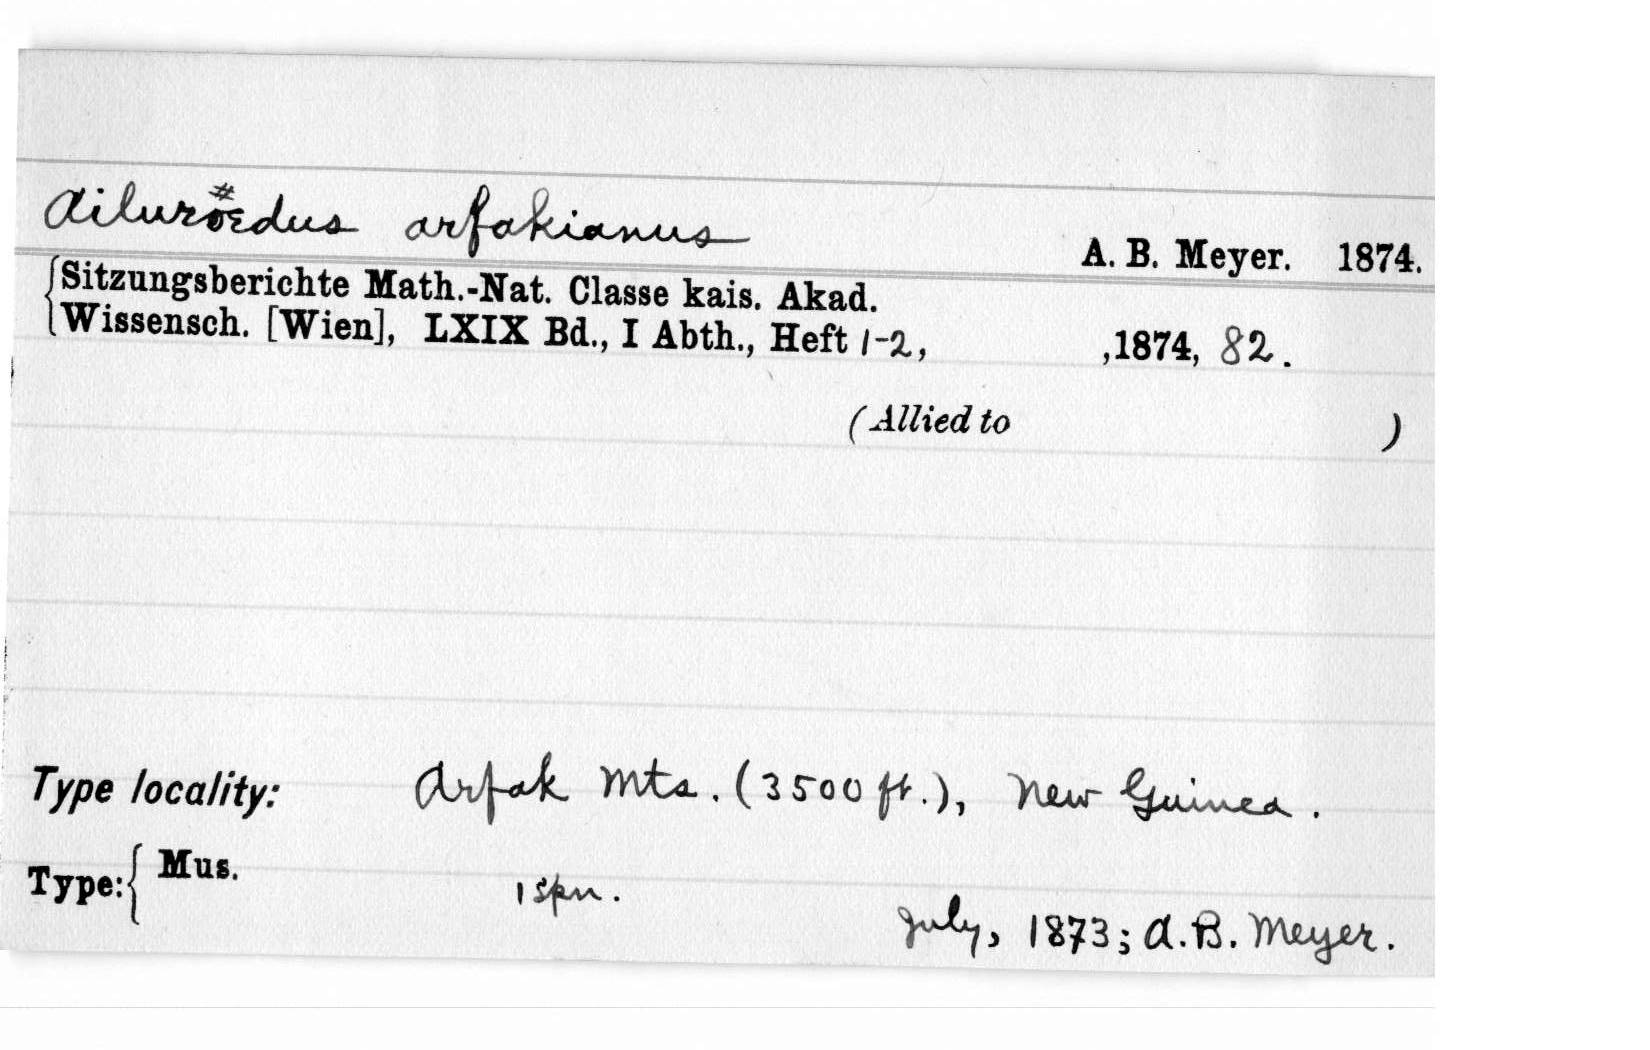 Ailuroedus arfakianus A. B. Meyer. 1874.
Sitzungsberichte Math.-Nat. Classe kais. Akad.
Wissensch. [Wien], LXIX Bd., I Abth., Heft 1-2, ,1874, 82.
(Allied to )
Type locality: Arfak Mts. (3500 ft.), New Guinea.
Type: { Mus. 1 spn.
July, 1873; A. B. Meyer.